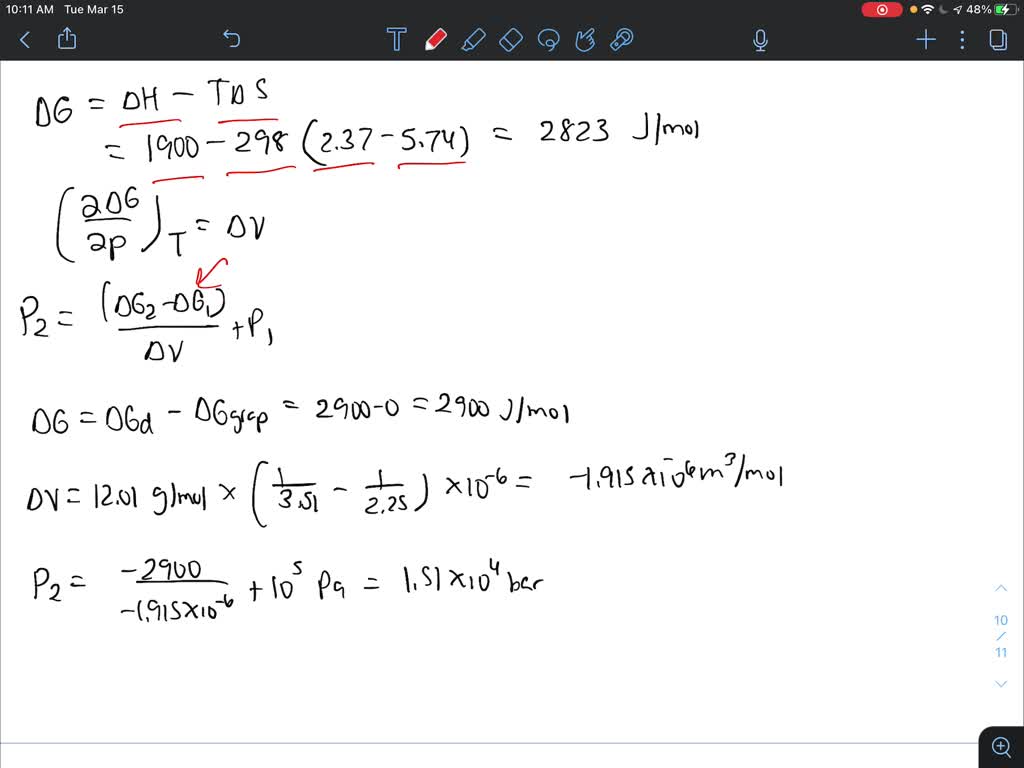 10:11 AM Tue Mar 15
48%
T
DG = DH - TDS
= 1900 - 298 (2.37 - 5.74) = 2823 J/mol
(2DG/2p)T = DV
P2 = (DG2 - DG1)/DV + P1
DG = DGd - DGgrap = 2900 - 0 = 2900 J/mol
DV = 12.01 g/mol × (1/3.51 - 1/2.25) × 10^-6 = -1.915 × 10^-6 m^3/mol
P2 = -2900/-1.915×10^-6 + 10^5 Pa = 1.51 × 10^4 bar
10
/
11